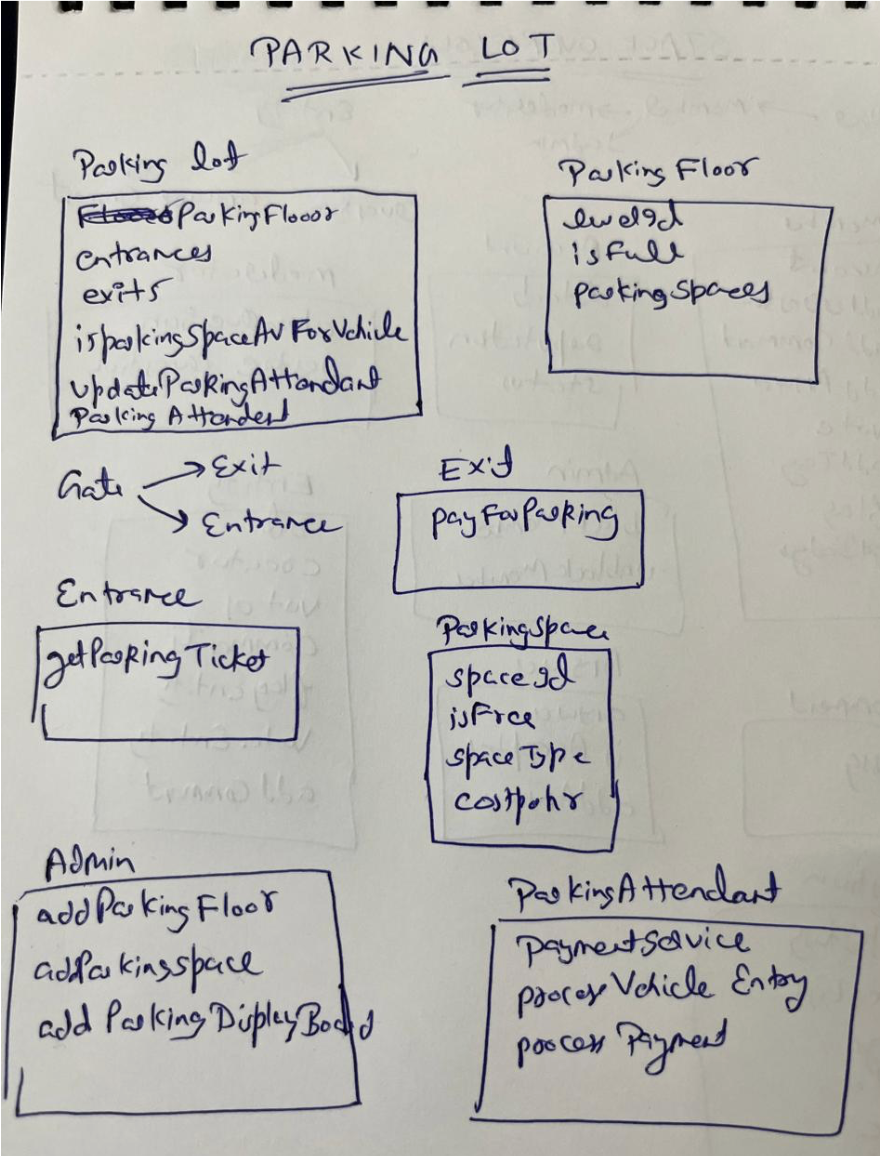 PARKING LOT
Parking lot
ParkingFlooor
entrances
exits
isparkingSpaceAvForVehicle
updateParkingAttandant
Parking Attendent
Parking Floor
levelId
isFull
parkingSpaces
Gate
Exit
Entrance
Exit
payForParking
Entrance
getParkingTicket
ParkingSpace
spaceId
isFree
spaceType
costpohr
Admin
addParkingFloor
addParkingspace
add ParkingDisplayBoard
ParkingAttendant
paymentService
process Vehicle Entry
process Payment